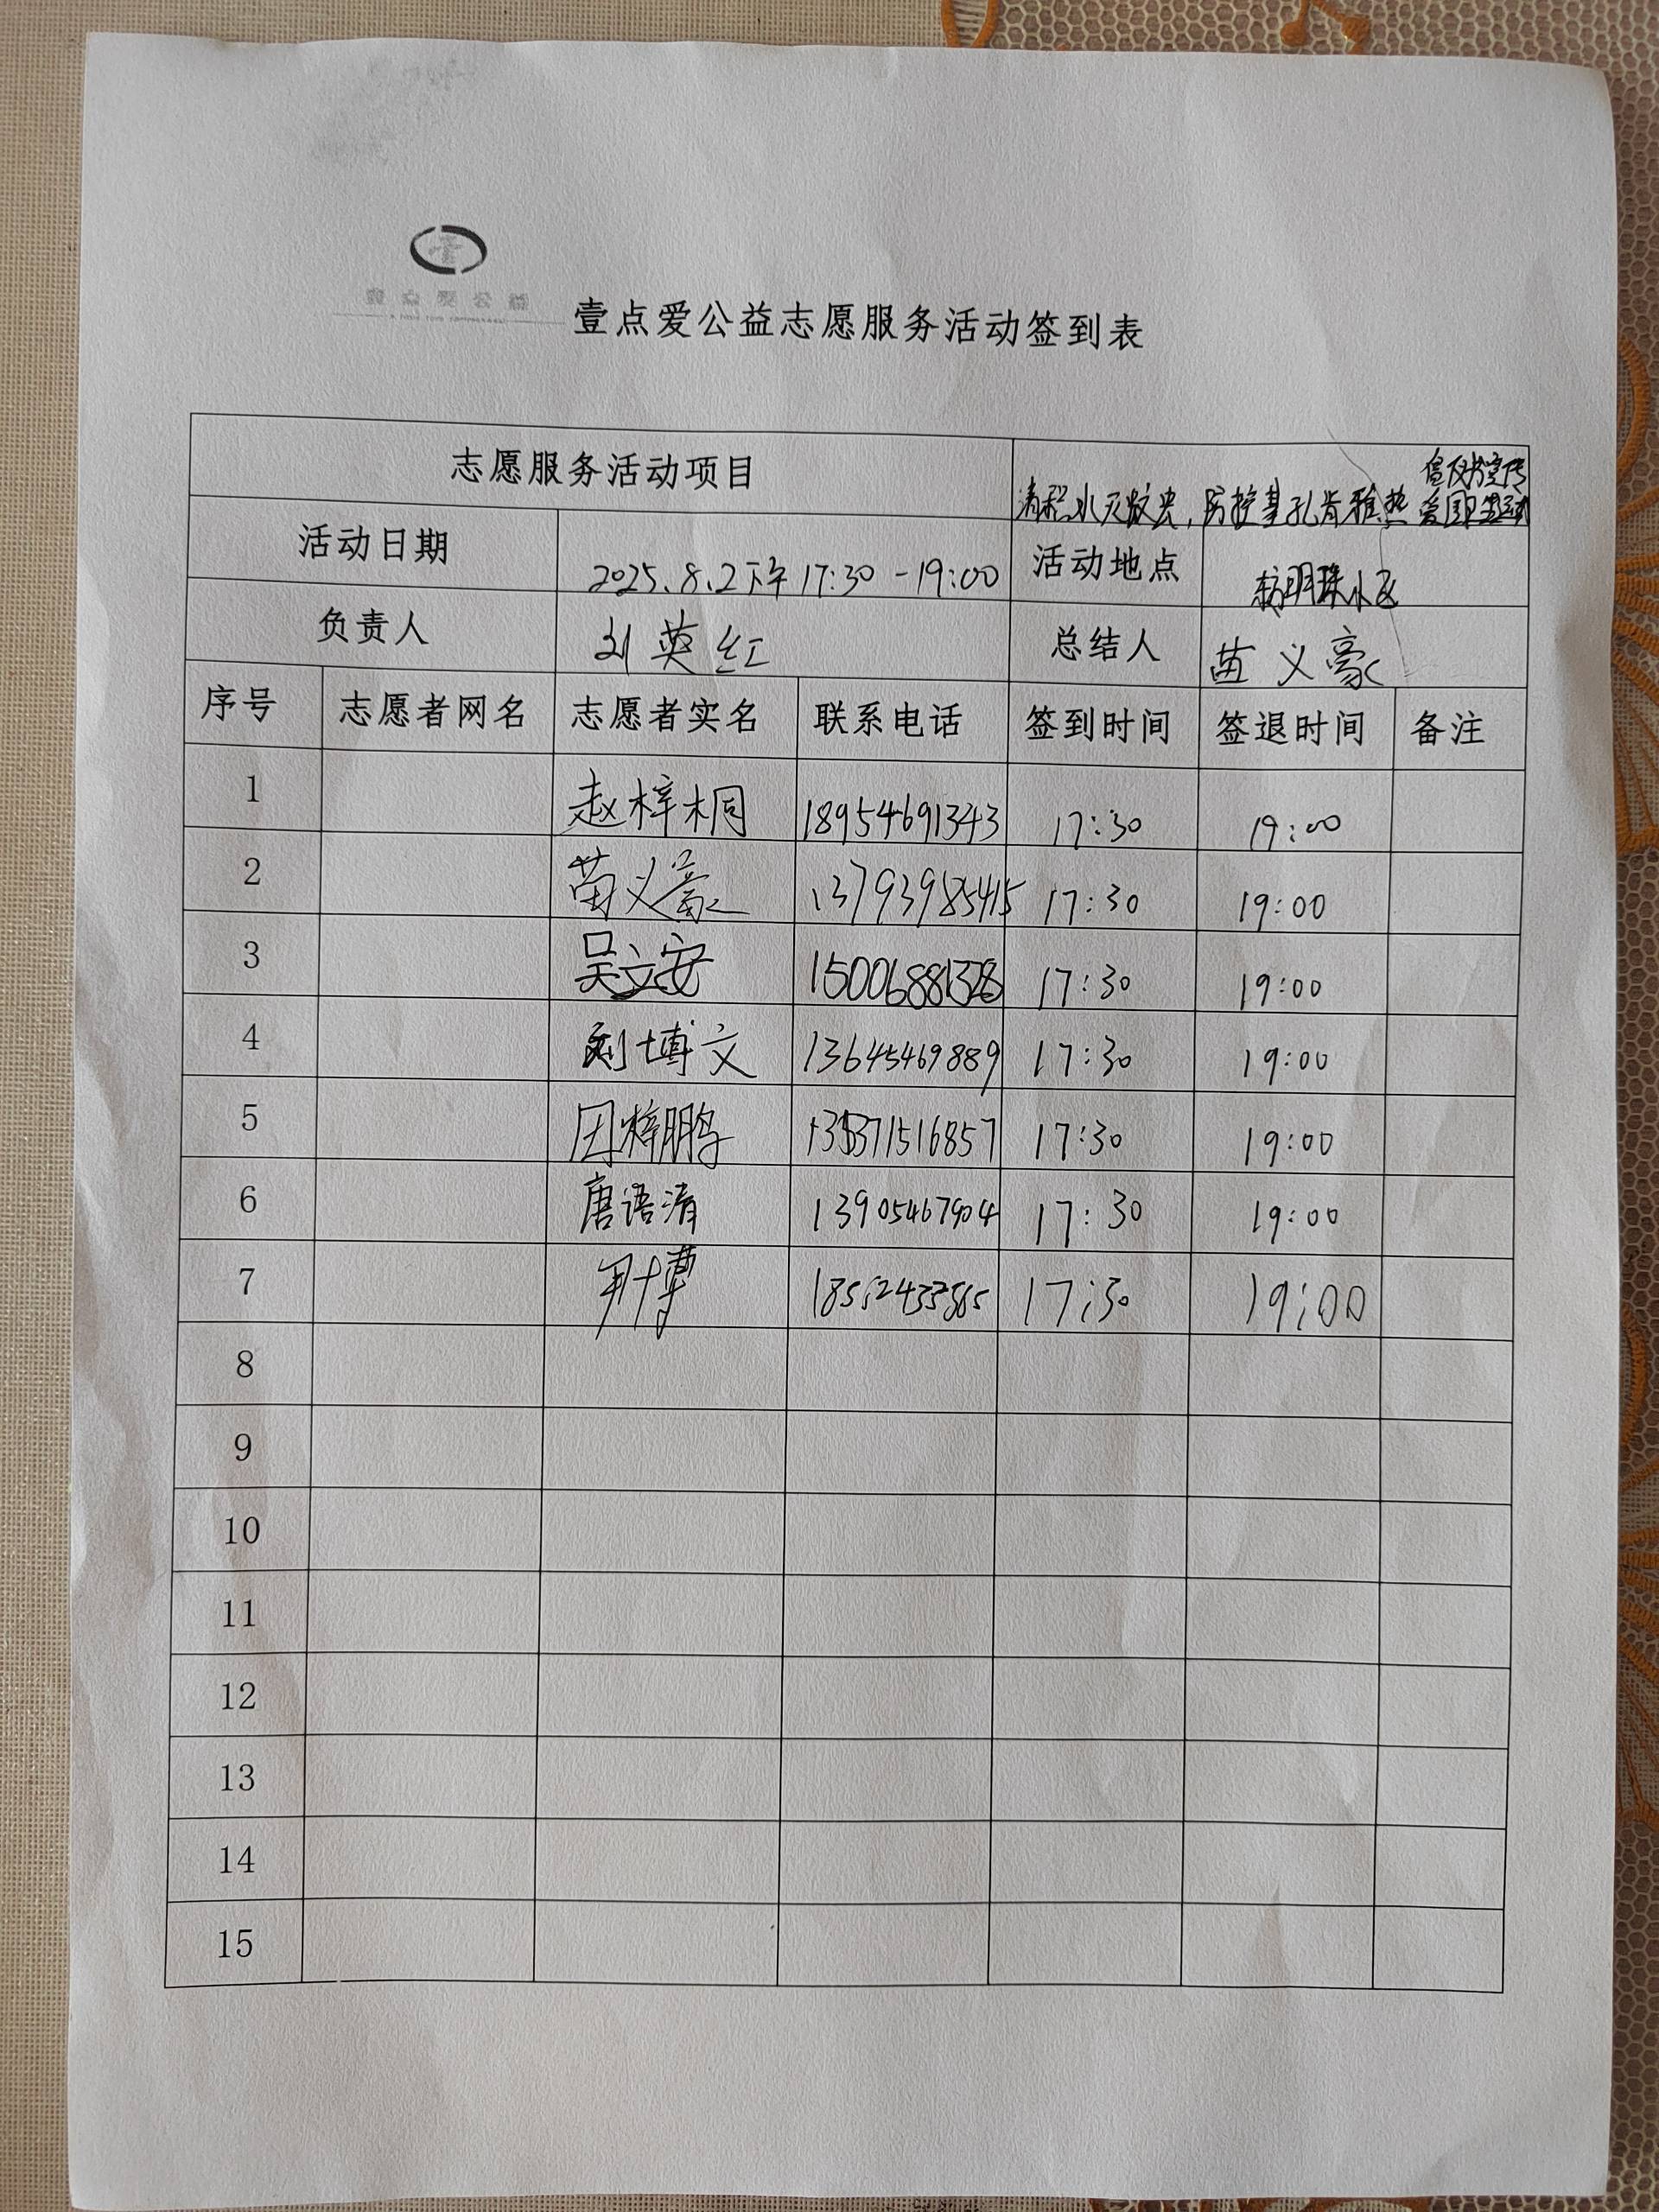 壹点爱公益
壹点爱公益志愿服务活动签到表
志愿服务活动项目 清积水灭蚊虫,防控基孔肯雅热 倡议书宣传 爱国卫生运动
活动日期 2025.8.2下午17:30-19:00 活动地点 明珠小区
负责人 刘英红 总结人 苗义豪
序号 志愿者网名 志愿者实名 联系电话 签到时间 签退时间 备注
1 赵梓桐 18954691343 17:30 19:00
2 苗义豪 13793985415 17:30 19:00
3 吴文安 17:30 19:00
4 刘博文 13645469889 17:30 19:00
5 梓鹏 17:30 19:00
6 唐语清 13905467904 17:30 19:00
7 尹博 17:30 19:00
8
9
10
11
12
13
14
15